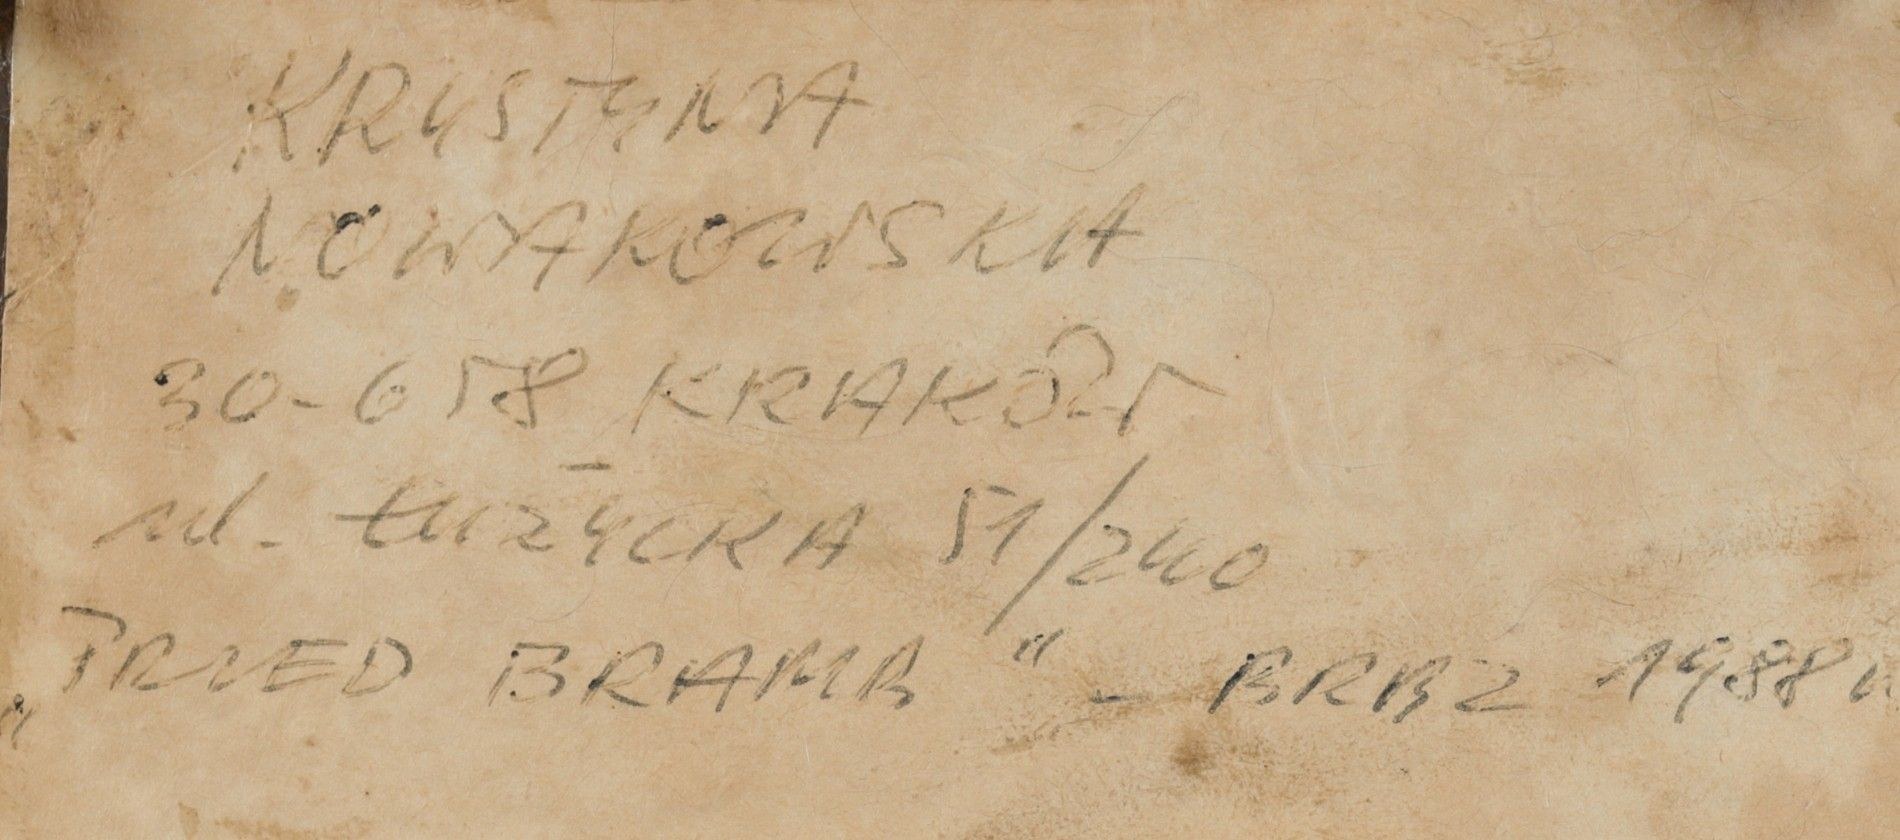 KRYSTYNA
NOWAKOWSKA
30-658 KRAKÓW
ul. ŁUŻYCKA 51/240
„PRZED BRAMĄ" - BRĄZ 1988